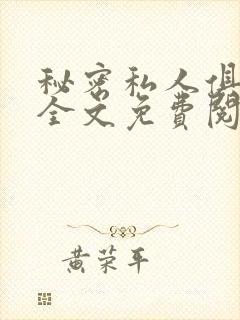 秘密私人俱
全文免费阅
黄荣平